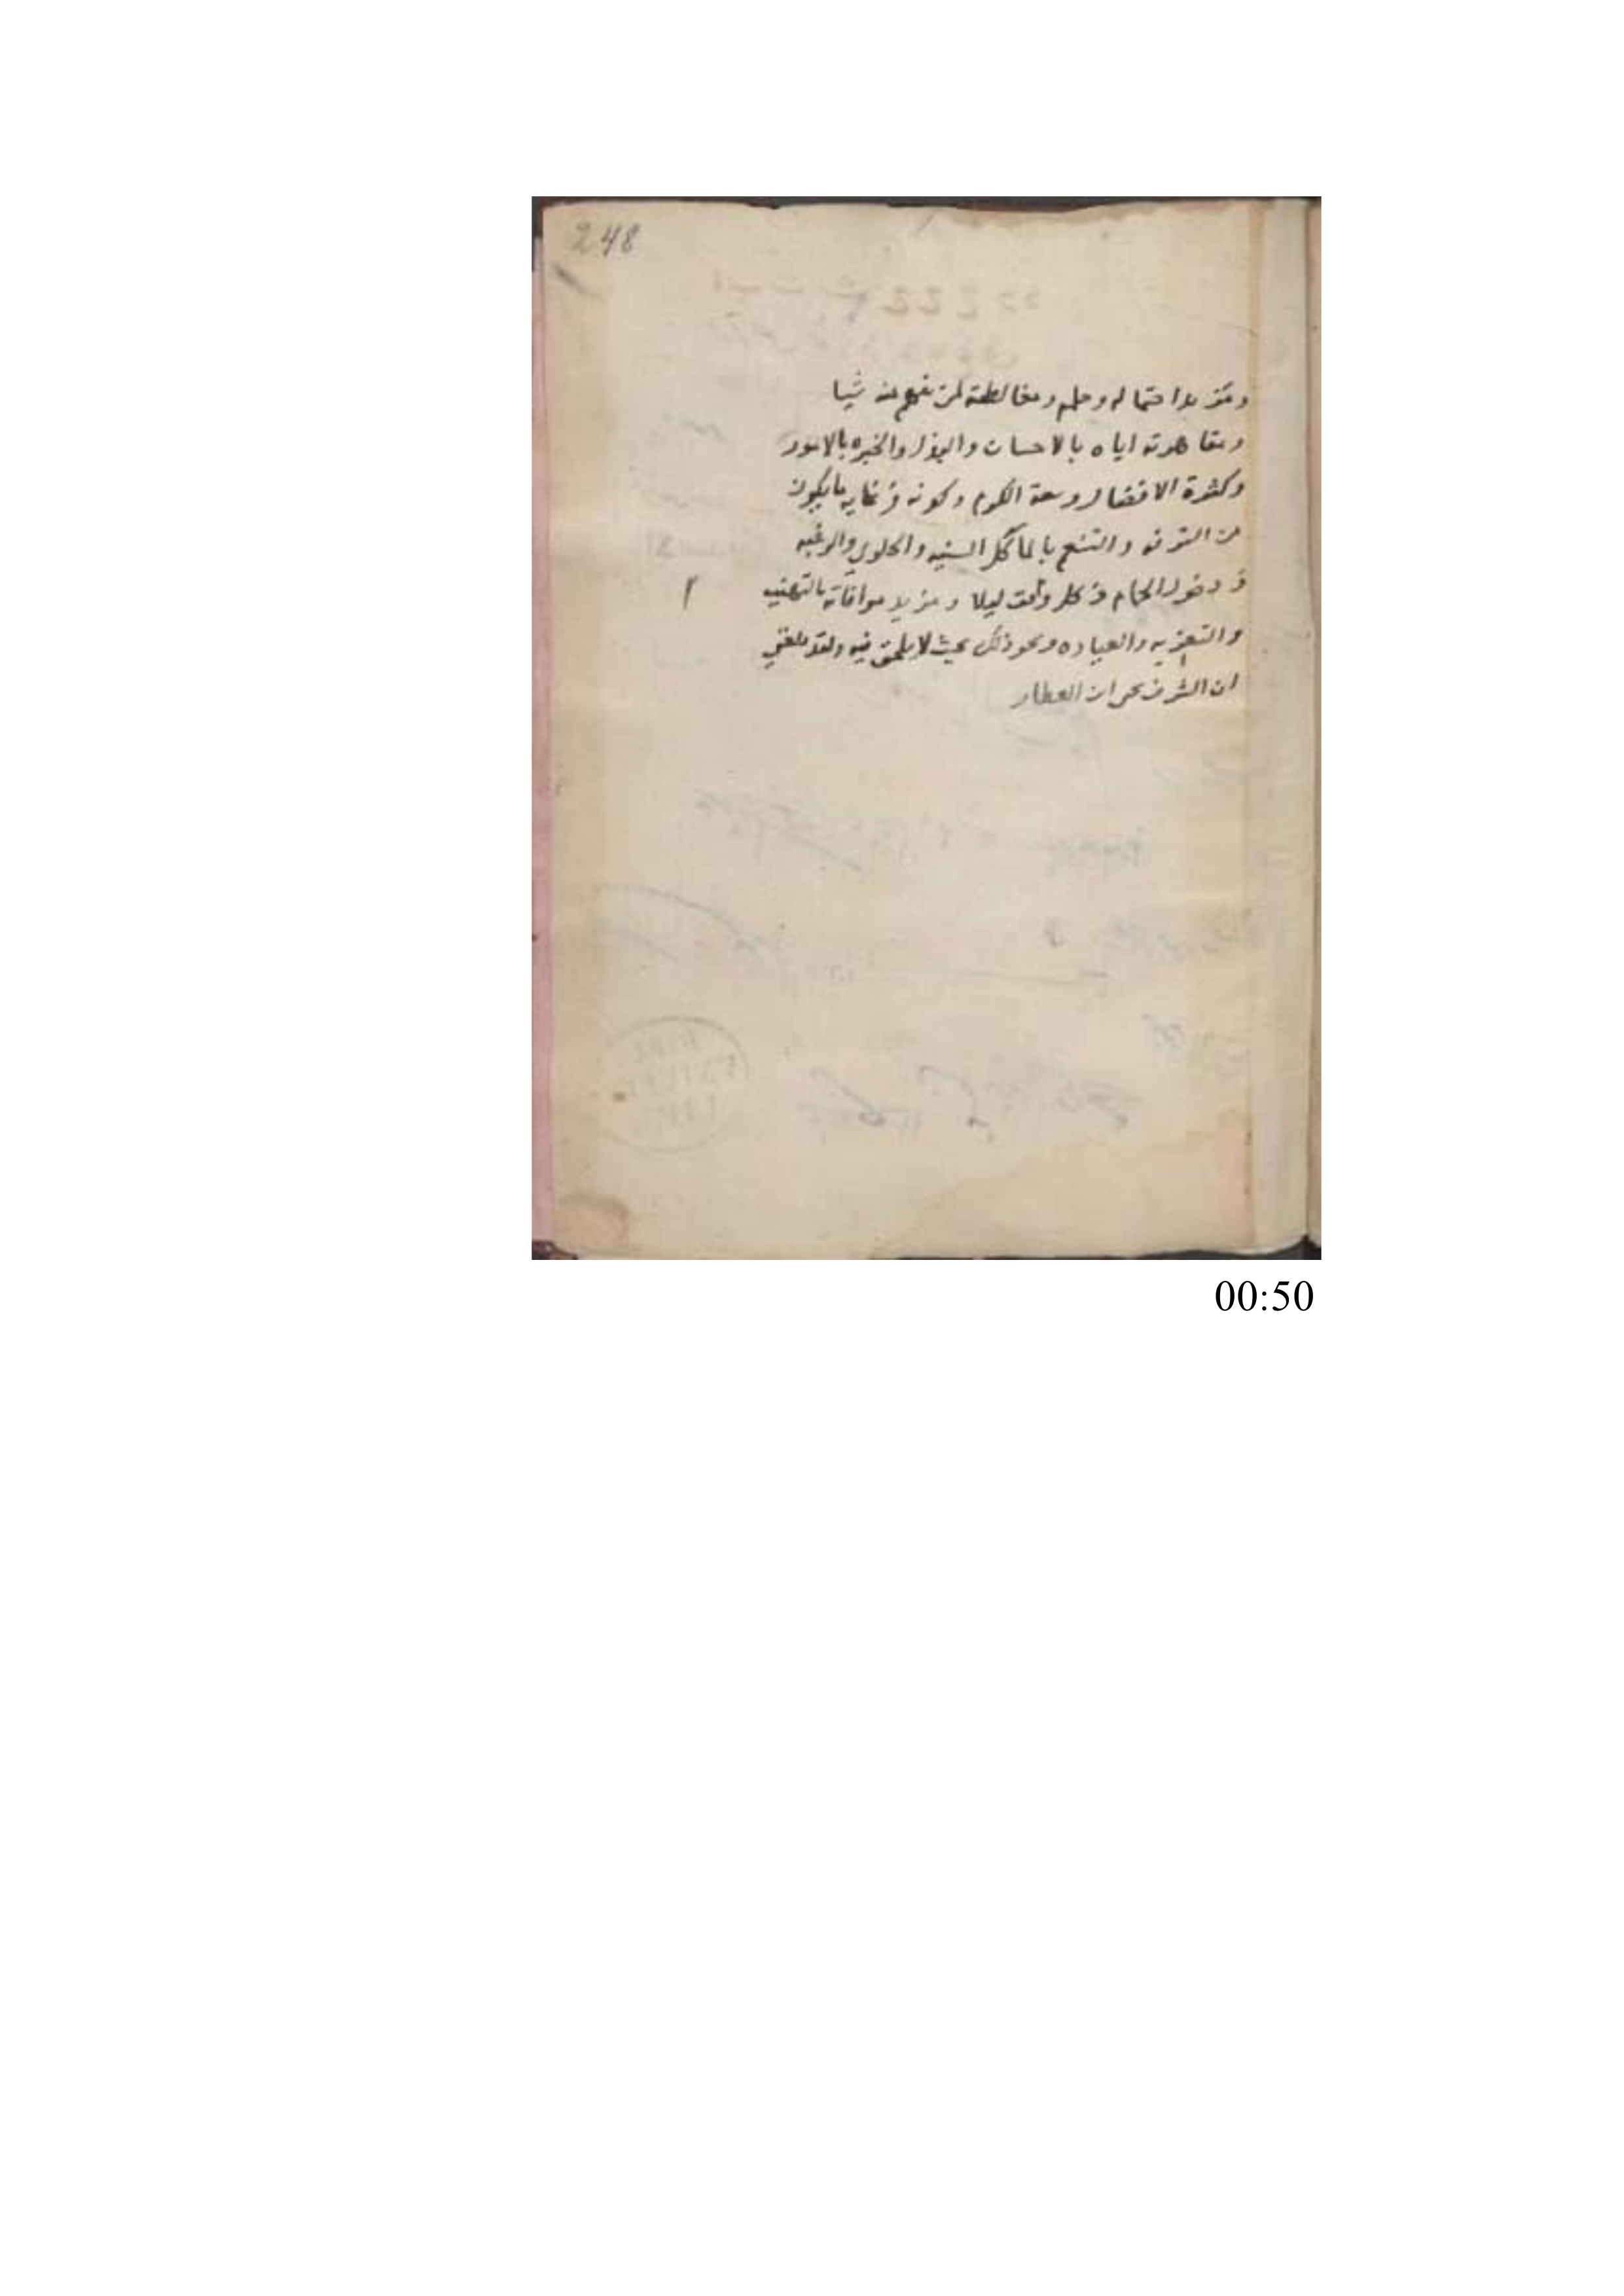 248
ومزيد احتماله وحلمه ومغالطته لمن يفهم عنه شيا
ومقاهرته اياه بالاحسان والبذل والخبره بالامور
وكثرة الافضال وسعة الكرم وكونه في غايه ما يكون
من الترفه والتنعم بالمآكل السنيه والحلوي والرغبه
في دخول الحمام في كل وقت ليلا ومزيد موافاته بالتهنيه
والتعزيه والعياده ونحو ذلك بحيث لا يلحق فيه ولقد بلغني
ان الشرف يحيى ابن العطار
00:50